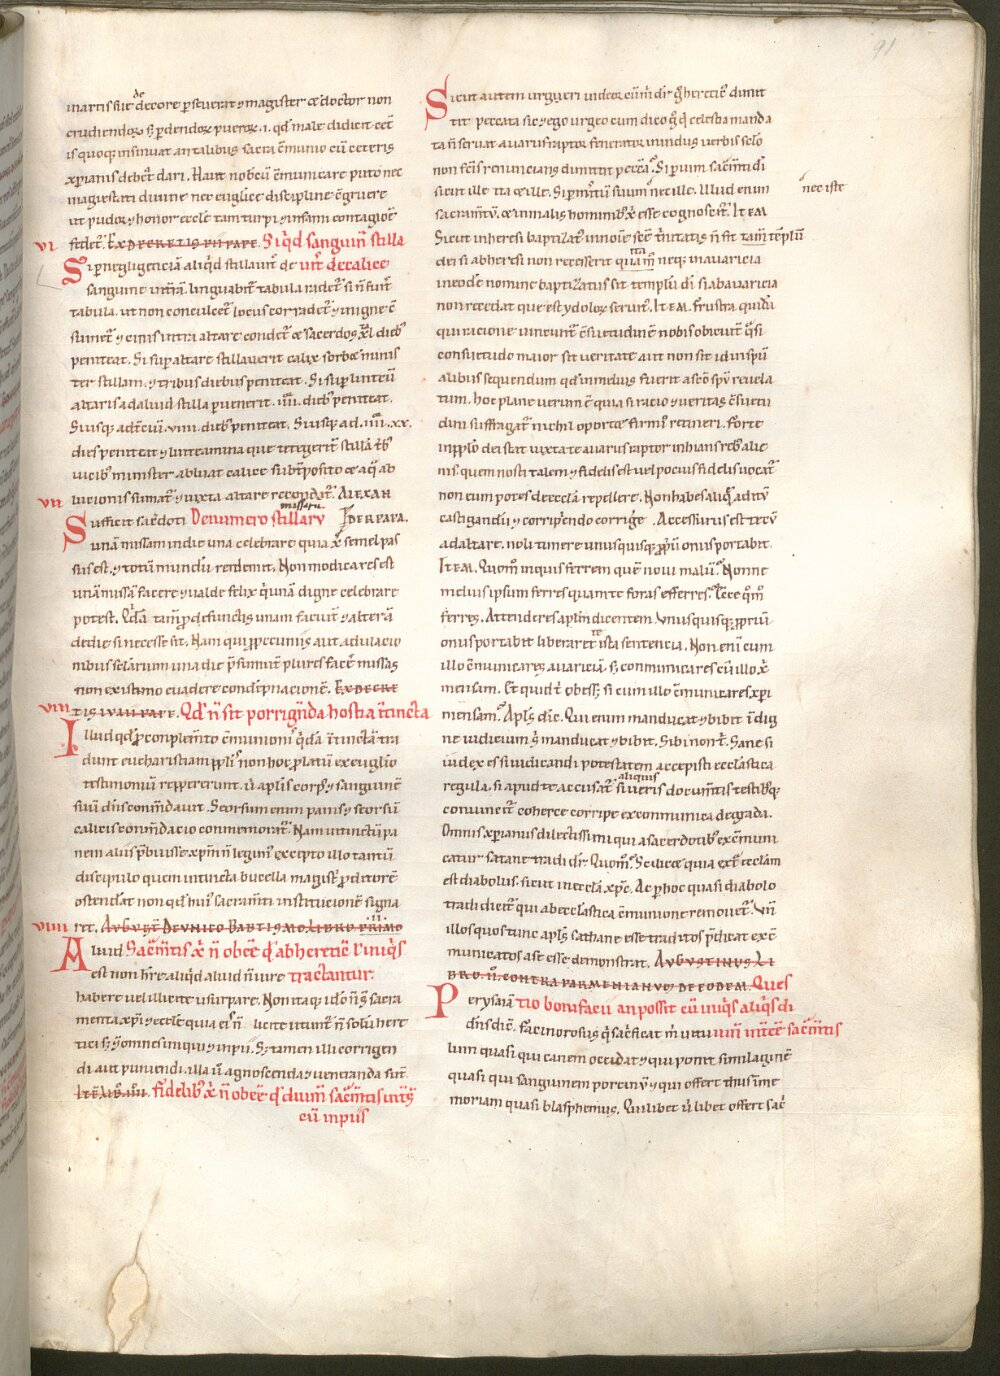 91
inartis sue dedecore pseuerat ⁊ magister & doctor non
erudiendoꝝ sꝫ pdendoꝝ pueroꝝ .i. qd male didicit
is quoqꝫ insinuat an talibus sacra cōmunio cū ceteris
xp̄ianis debet dari. Haut nobcū cōmunicare puto nec
magestati diuine nec euglice discipline cōgruere
ut pudor ⁊ honor eccl̄e tam turpi ⁊ infami contagioē
fedet. Ex DECRETIS PII PAPE. Si qd sanguinis stilla
VI
Si p negligenciā aliqd stillauit de uerit de calice
sanguine in terrā. lingua tabula radet si n̄ fuit
tabula. ut non conculcet locus corradet ⁊ in igne
sumet ⁊ cinis intra altare condet & sacerdos xl dieb
peniteat. Si sup altare stillauerit calix sorbeat minis
ter stillam. ⁊ tribus diebus peniteat. Si sup linteū
altaris ad aliud stilla puenerit. iiii. dieb peniteat.
Si usqꝫ ad tciū. viiii. dieb peniteat. Si usqꝫ ad. iiii. xx.
dies peniteat ⁊ linteamina que tetegerit stilla tb
uicib minister abluat calice subt posito & aq ab
lucionis sumat ⁊ iuxta altare recondat. ALEXAN
VII
Sufficit sacdoti De numero stillarū missarū DER PAPA.
unā missam in die una celebrare quia xp̄c semel pas
sus est. ⁊ totū mundū redemit. Non modica res est
unā missā facere ⁊ ualde felix q unā digne celebrare
potest. Qdā tam p defunctis unam faciunt ⁊ alterā
de die si necesse sit. Nam qui p pecuniis aut adulacio
nibus selarum una die psumunt plures facē missas
non existimo euadere condēpnacionē. Ex DECRE
VIII
TIS IULII PAPE. Qd n̄ sit porrigenda hostia intincta
Illud qd p conplemto cōmunionis qdā intincta tra
dunt eucharistiam pplis non hoc platū ex euglio
testimoniū reppererunt. ū aplis corp ⁊ sanguinē
suū dn̄s comdauit. Seorsum enim panis ⁊ seorsū
calicis comdacio conmemorat. Nam intinctū pa
nem aliis pbuisse xp̄m n̄ legim excepto illo tantū
discipulo quem intincta bucella magistri pditorē
ostendat non qd hui sacramti institucionē signa
VIIII
ret. AUGUST DE UNICO BAPTISMO LIBRO PRIMO
Aliud Sacmtis xp̄i n̄ obeē qd ab hereticis l iniqs
est non hre aliqd aliud n̄ iure tractantur.
habere uel illicite usurpare. Non itaqꝫ ido n̄ s sacra
menta xp̄i ⁊ eccl̄e quia eis n̄ licite utunt n̄ solū here
tici sꝫ ⁊ omnes iniqui ⁊ impii. Sꝫ tamen illi corrigen
di aut puniendi. illa ū agnoscenda ⁊ ueneranda sunt.
Fidelib xp̄i n̄ obeē qd diuinis sacmtis
cū impiis
Sicut autem urgueri uideoꝝ cū m̄ dr q heretic dimit
tit peccata sic ⁊ ego urgeo cum dico q q celestia manda
ta n̄ seruat auarus raptor fenerator inuidus uerbis seclo
non fcis renuncians dimittit pccata. Si p uim sacmti di
sicut ille ita & ille. Si p mitū suum nec ille. Illud enim nec iste
sacramtū. & in malis hominib xp̄i esse cognoscit. ITEM
Sicut in heresi baptizat in noīe sce tnitatis n̄ fit tam templū
dei si ab heresi non recesserit quam ita neqꝫ in auaricia
in eode nomine baptizatus fit templū di si ab auaricia
non recedat que est ydoloꝝ seruit. ITEM. Frustra quidā
qui racione uincunt cōsuetudinē nobis obiciunt qsi
consuetudo maior sit ueritate aut non sit id in spu
alibus sequendum qd in melius fuerit a sco spu reuela
tum. hoc plane uerum ē quia si racio ⁊ ueritas cōsuetu
dini suffragat nichil oportet firmi retineri. Forte
in pplo dei stat iuxta te auarus raptor inhians reb alie
nis quem nosti talem ⁊ fidelis est uel pocius fidelis uocat
non eum potes de eccla repellere. Non habes aliq aditū
castigandū ⁊ corripiendo corrige. Accessurus est tecū
ad altare. noli timere unusquisqꝫ ppū onus portabit.
ITEM. Quom inquis ferrem quē noui malū? Nonne
melius ipsum ferres quam te foras efferres? Ecce qm
ferres. Attenderes aplm dicentem. Unusquisqꝫ ppriū
onus portabit liberaret te ista sentencia. Non eni cum
illo cōmunicares auariciā. sꝫ conmunicares cū illo xp̄i
mensam. Et quid t obesset si cum illo cōmunicares xpi
mensam? Apls dic. Qui enim manducat ⁊ bibit īdig
ne iudicium s manducat ⁊ bibit. Sibi non t. Sane si
iudex es si iudicandi potestatem accepisti ecclastica
regula. si apud te accusat si ueris aliquis documtis testibqꝫ
conuincit coherce corripe excommunica degrada.
Omnis xp̄ianus dilectissimi qui a sacerdotib excōmuni
catur satane tradi dr. Quom? Scilicet quia ext ecclam
est diabolus. sicut in eccla xp̄c. Ac p hoc quasi diabolo
tradi dicit qui ab ecclastica cōmunione remouet. Un
illos quos tunc apls sathane esse traditos pdicat excō
municatos a se esse demonstrat. AUGUSTINUS LI
BRO II CONTRA PARMENIANUS DE EODEM. Ques
Perysaiā tio bonifacii an possit cū iniqs aliqs di
dn̄s dic. Facinorosus q sacficat m uitu uinis intēē sacmtis
lum quasi qui canem occidat ⁊ qui ponit similaginē
quasi qui sanguinem porcinū ⁊ qui offert thus īme
moriam quasi blasphemus. Quilibet ū libet offert sac